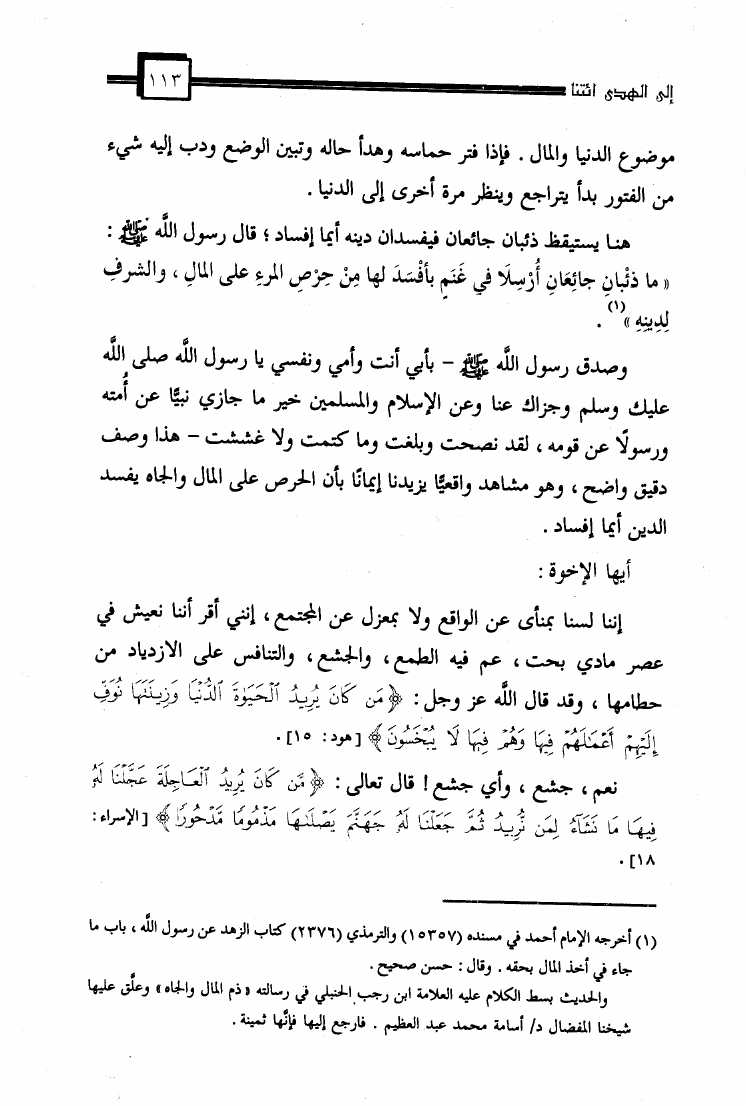 إلى الهدى ائتنا
١١٣
موضوع الدنيا والمال . فإذا فتر حماسه وهدأ حاله وتبين الوضع ودب إليه شيء
من الفتور بدأ يتراجع وينظر مرة أخرى إلى الدنيا .
هنا يستيقظ ذئبان جائعان فيفسدان دينه أيما إفساد ؛ قال رسول اللَّه ﷺ :
« ما ذئْبانِ جائِعَانِ أُرْسِلَا في غَنَمٍ بأفْسَدَ لها مِنْ حِرْصِ المرءِ على المالِ ، والشرفِ
لِدِينِهِ »(١) .
وصدق رسول اللَّه ﷺ – بأبي أنت وأمي ونفسي يا رسول اللَّه صلى اللَّه
عليك وسلم وجزاك عنا وعن الإسلام والمسلمين خير ما جازي نبيًّا عن أُمته
ورسولًا عن قومه ، لقد نصحت وبلغت وما كتمت ولا غششت – هذا وصف
دقيق واضح ، وهو مشاهد واقعيًّا يزيدنا إيمانًا بأن الحرص على المال والجاه يفسد
الدين أيما إفساد .
أيها الإخوة :
إننا لسنا بمنأى عن الواقع ولا بمعزل عن المجتمع ، إنني أقر أننا نعيش في
عصر مادي بحت ، عم فيه الطمع ، والجشع ، والتنافس على الازدياد من
حطامها ، وقد قال اللَّه عز وجل : ﴿ مَن كَانَ يُرِيدُ ٱلْحَيَوٰةَ ٱلدُّنْيَا وَزِينَتَهَا نُوَفِّ
إِلَيْهِمْ أَعْمَٰلَهُمْ فِيهَا وَهُمْ فِيهَا لَا يُبْخَسُونَ ﴾ [هود: ١٥] .
نعم ، جشع ، وأي جشع ! قال تعالى : ﴿ مَّن كَانَ يُرِيدُ ٱلْعَاجِلَةَ عَجَّلْنَا لَهُۥ
فِيهَا مَا نَشَآءُ لِمَن نُّرِيدُ ثُمَّ جَعَلْنَا لَهُۥ جَهَنَّمَ يَصْلَىٰهَا مَذْمُومًا مَّدْحُورًا ﴾ [الإسراء :
١٨] .
(١) أخرجه الإمام أحمد في مسنده (١٥٣٥٧) والترمذي (٢٣٧٦) كتاب الزهد عن رسول اللَّه ، باب ما
جاء في أخذ المال بحقه . وقال : حسن صحيح .
والحديث بسط الكلام عليه العلامة ابن رجب الحنبلي في رسالته « ذم المال والجاه » وعلَّق عليها
شيخنا المفضال د/ أسامة محمد عبد العظيم . فارجع إليها فإنَّها ثمينة .